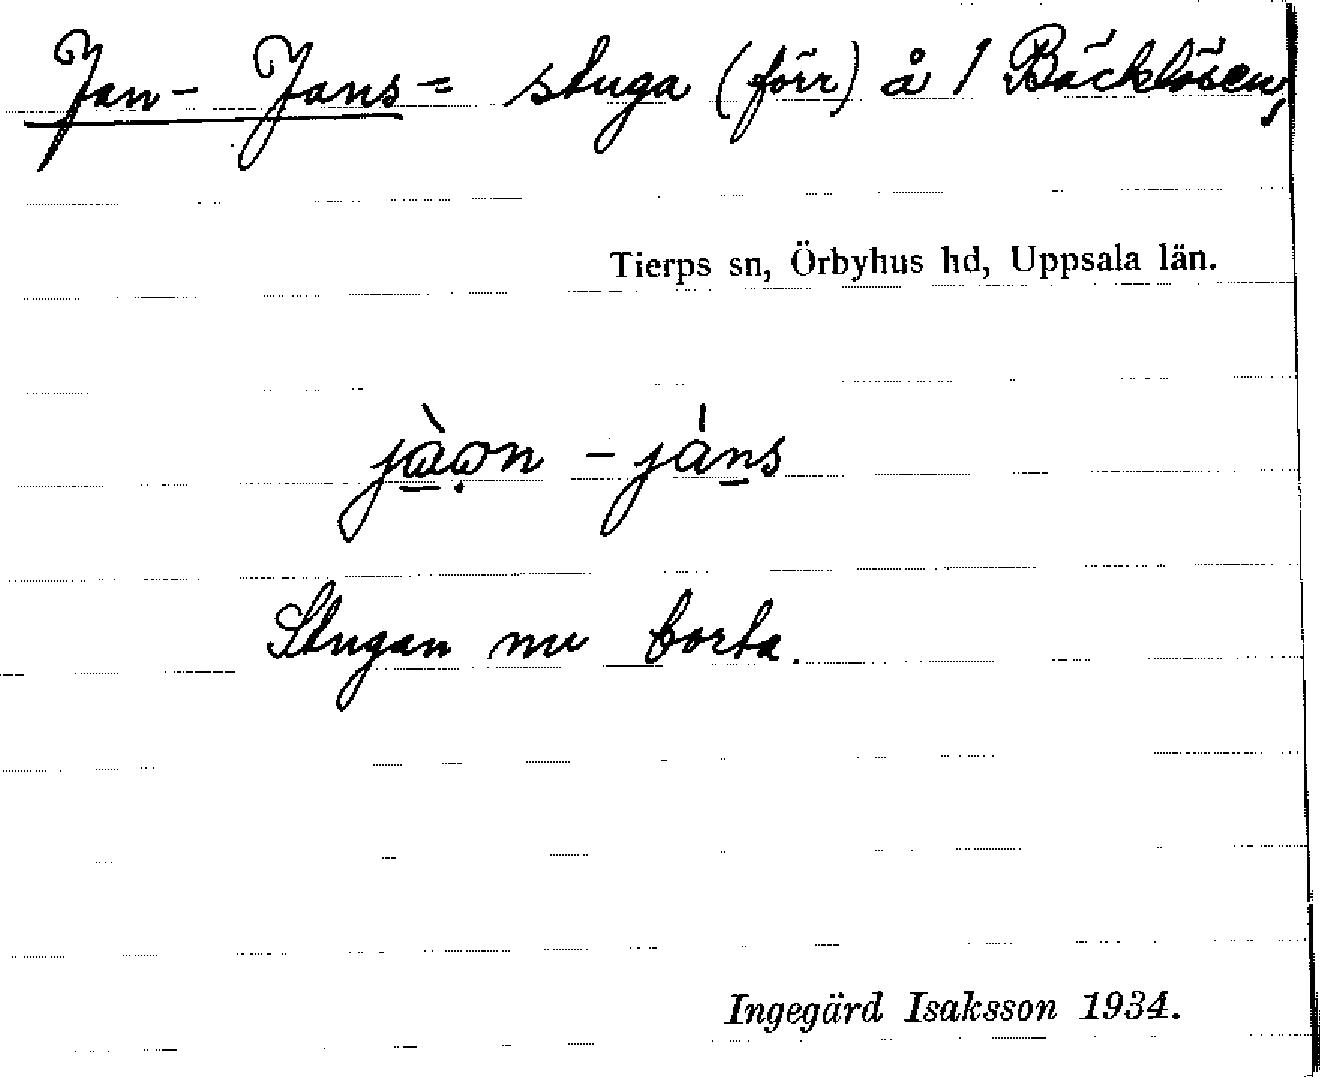 Jan-Jans= stuga (förr) å 1 Bäcklösen,
Tierps sn, Örbyhus hd, Uppsala län.
Stugan nu borta.
Ingegärd Isaksson 1934.